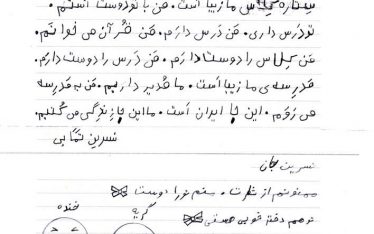 ستاره کلاس ما زیبا است. من با تو دوست هستم.
تو درس داری. من درس دارم. من قرآن می خوانم.
من کلاس را دوست دارم. من درس را دوست دارم.
مدرسه ی ما زیبا است. ما مدیر داریم. من به مدرسه
می روم. این جا ایران است. ما این جا زندگی می کنیم.
نسرین
نسرین جان
ممنونم از منم تو را دوست
تو هم دختر خوبی هستی
گریه خنده